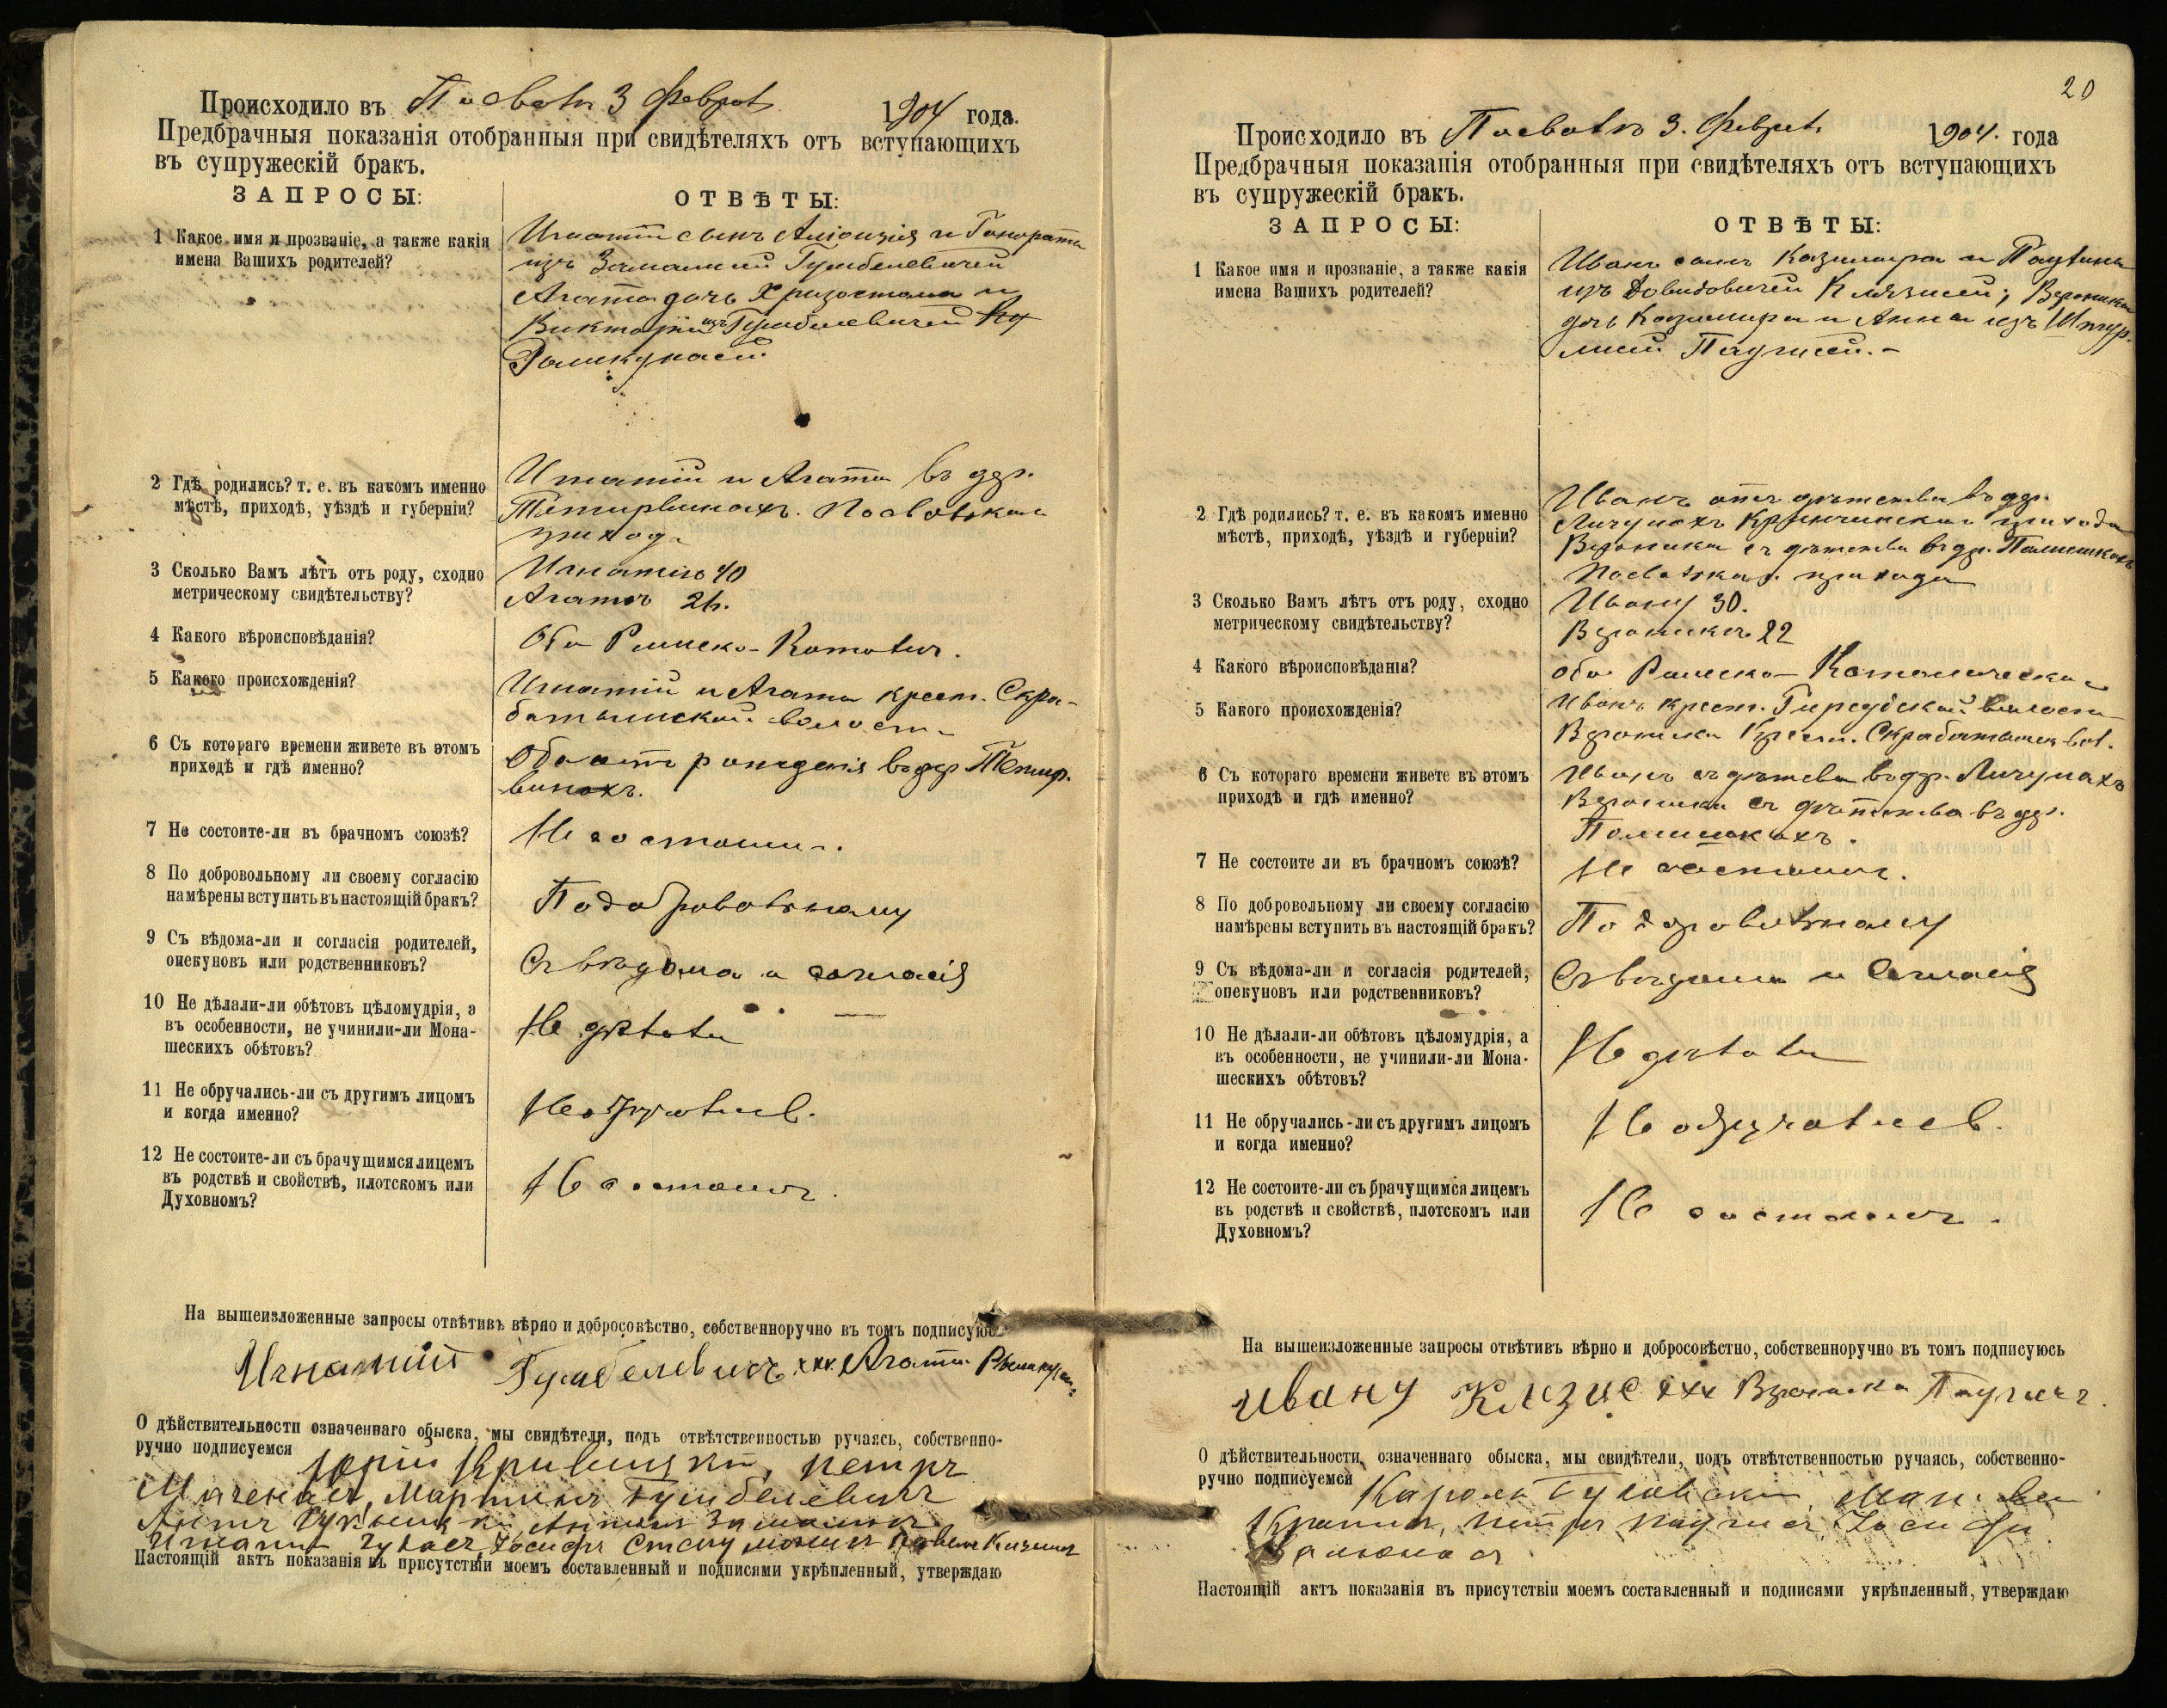 Происходило въ Посволи 3 Феврал 1904 года.
Предбрачныя показанія отобранныя при свидѣтеляхъ отъ вступающихъ
въ супружескій бракъ.
ЗАПРОСЫ:
ОТВѢТЫ:
1 Какое имя и прозваніе, а также какія
имена Вашихъ родителей?
Игнатій сынъ Алюизія и Гонораты
изъ Гумбелевичей
Агата дочь Хризостома и
Викторіи изъ Гумбелевичей
2 Гдѣ родились? т. е. въ какомъ именно
мѣстѣ, приходѣ, уѣздѣ и губерніи?
Игнатій и Агата въ дер.
Посвольскаго
прихода
3 Сколько Вамъ лѣтъ отъ роду, сходно
метрическому свидѣтельству?
Игнатію 40
Агатѣ
4 Какого вѣроисповѣданія?
Оба Римско-Католич.
5 Какого происхожденія?
Игнатій и Агата крест. Скро-
ботышской волости
6 Съ котораго времени живете въ этомъ
приходѣ и гдѣ именно?
Оба отъ рожденія въ дер
7 Не состоите-ли въ брачномъ союзѣ?
Не состоимъ.
8 По добровольному ли своему согласію
намѣрены вступить въ настоящій бракъ?
По добровольному
9 Съ вѣдома-ли и согласія родителей,
опекуновъ или родственниковъ?
Съ вѣдома и согласія
10 Не дѣлали-ли обѣтовъ цѣломудрія, а
въ особенности, не учинили-ли Мона-
шескихъ обѣтовъ?
Не дѣлали
11 Не обручались-ли съ другимъ лицомъ
и когда именно?
Не обручались.
12 Не состоите-ли съ брачущимся лицемъ
въ родствѣ и свойствѣ, плотскомъ или
Духовномъ?
Не состоимъ.
На вышеизложенные запросы отвѣтивъ вѣрно и добросовѣстно, собственноручно въ томъ подписуюсь
Игнатій Гумбелевичъ xxx Агата
О дѣйствительности означеннаго обыска, мы свидѣтели, подъ отвѣтственностью ручаясь, собственно-
ручно подписуемся
Мартинъ Гумбелевичъ
Настоящій актъ показанія въ присутствіи моемъ составленный и подписями укрѣпленный, утверждаю
20
Происходило въ Посволи 3. Феврал. 1904. года
Предбрачныя показанія отобранныя при свидѣтеляхъ отъ вступающихъ
въ супружескій бракъ.
ЗАПРОСЫ:
ОТВѢТЫ:
1 Какое имя и прозваніе, а также какія
имена Вашихъ родителей?
Иванъ сынъ Казимира и
изъ Довидовичей Вероника
дочь Казимира и Анны изъ
2 Гдѣ родились? т. е. въ какомъ именно
мѣстѣ, приходѣ, уѣздѣ и губерніи?
Иванъ отъ дѣтства въ дер.
Личунахъ Кринчинскаго прихода
Вероника съ дѣтства въ др.
Посвольскаго прихода
3 Сколько Вамъ лѣтъ отъ роду, сходно
метрическому свидѣтельству?
Ивану 30.
Вероникѣ 22
4 Какого вѣроисповѣданія?
Оба Римско-Католическаго
5 Какого происхожденія?
Иванъ крест. волости
Вероника Крест. Скроботышск. вол.
6 Съ котораго времени живете въ этомъ
приходѣ и гдѣ именно?
Иванъ съ дѣтства въ др. Личунахъ
Вероника съ дѣтства въ дер.
7 Не состоите ли въ брачномъ союзѣ?
Не состоимъ.
8 По добровольному ли своему согласію
намѣрены вступить въ настоящій бракъ?
По добровольному
9 Съ вѣдома-ли и согласія родителей,
опекуновъ или родственниковъ?
Съ вѣдома и согласія
10 Не дѣлали-ли обѣтовъ цѣломудрія, а
въ особенности, не учинили-ли Мона-
шескихъ обѣтовъ?
Не дѣлали
11 Не обручались-ли съ другимъ лицомъ
и когда именно?
Не обручались.
12 Не состоите-ли съ брачущимся лицемъ
въ родствѣ и свойствѣ, плотскомъ или
Духовномъ?
Не состоимъ.
На вышеизложенные запросы отвѣтивъ вѣрно и добросовѣстно, собственноручно въ томъ подписуюсь
Ивану xxx Вероника
О дѣйствительности означеннаго обыска, мы свидѣтели, подъ отвѣтственностью ручаясь, собственно-
ручно подписуемся
Настоящій актъ показанія въ присутствіи моемъ составленный и подписями укрѣпленный, утверждаю